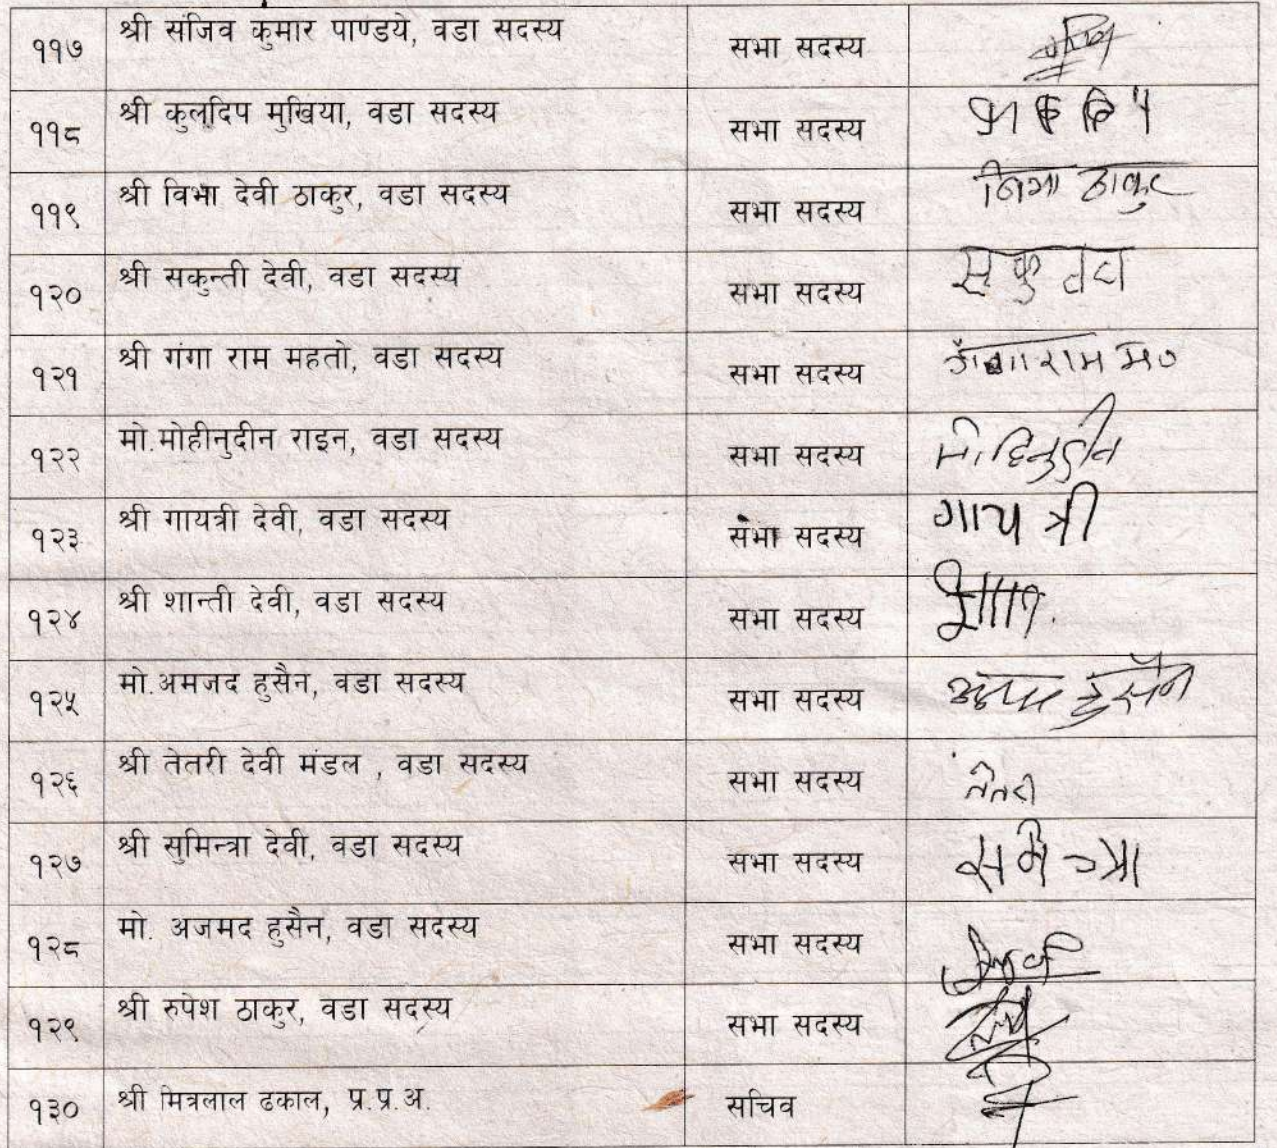 ११७ श्री संजिव कुमार पाण्डये, वडा सदस्य सभा सदस्य
११८ श्री कुलदिप मुखिया, वडा सदस्य सभा सदस्य
११९ श्री विभा देवी ठाकुर, वडा सदस्य सभा सदस्य विभा ठाकुर
१२० श्री सकुन्ती देवी, वडा सदस्य सभा सदस्य
१२१ श्री गंगा राम महतो, वडा सदस्य सभा सदस्य
१२२ मो.मोहीनुदीन राइन, वडा सदस्य सभा सदस्य
१२३ श्री गायत्री देवी, वडा सदस्य सभा सदस्य गायत्री
१२४ श्री शान्ती देवी, वडा सदस्य सभा सदस्य
१२५ मो.अमजद हुसैन, वडा सदस्य सभा सदस्य हुसैन
१२६ श्री तेतरी देवी मंडल , वडा सदस्य सभा सदस्य
१२७ श्री सुमिन्त्रा देवी, वडा सदस्य सभा सदस्य
१२८ मो. अजमद हुसैन, वडा सदस्य सभा सदस्य
१२९ श्री रुपेश ठाकुर, वडा सदस्य सभा सदस्य
१३० श्री मित्रलाल ढकाल, प्र.प्र.अ. सचिव